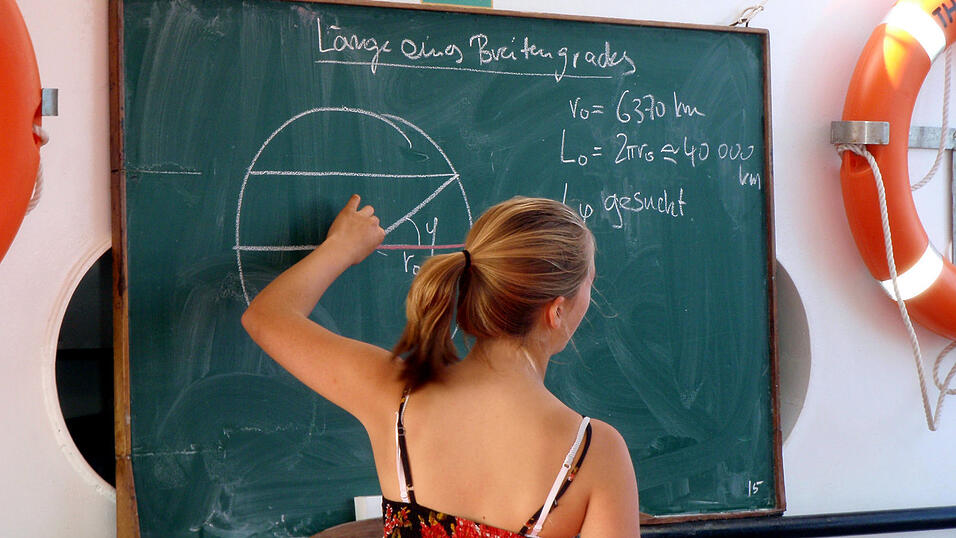 Länge eines Breitengrades
r₀ = 6370 km
L₀ = 2πr₀ ≃ 40 000
km
Lφ gesucht
φ
r₀
15
TH